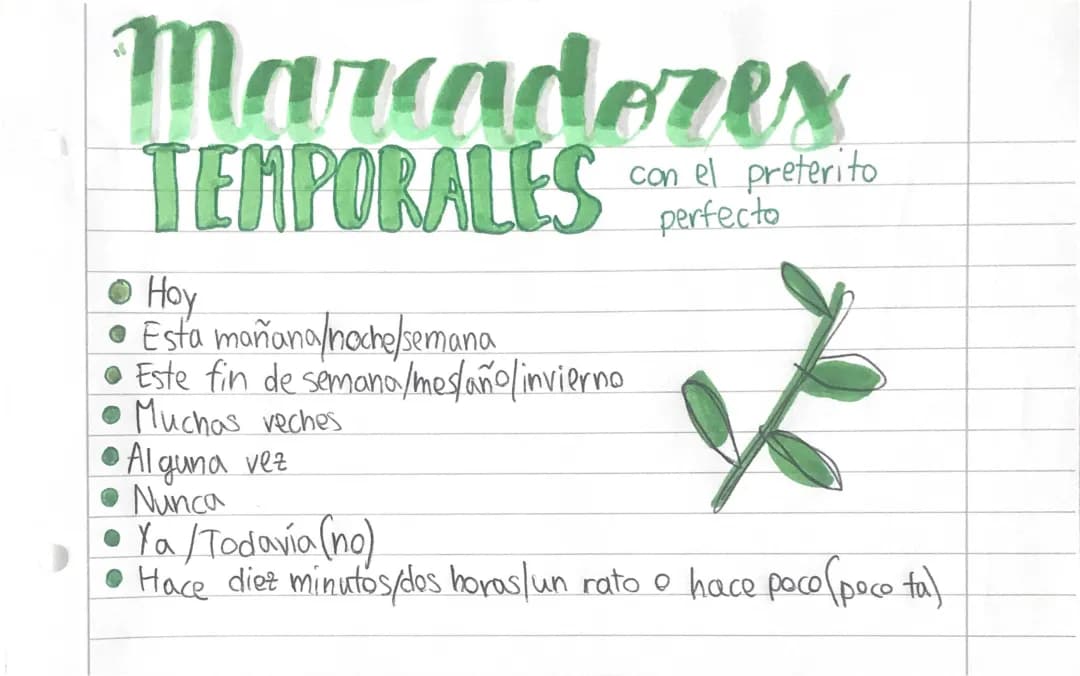 Marcadores
TEMPORALES con el preterito
perfecto
Hoy
Esta mañana/noche/semana
Este fin de semana/mes/año/invierno
Muchas veches
Alguna vez
Nunca
Ya/Todavía(no)
Hace diez minutos/dos horas/un rato o hace poco(poco ta)